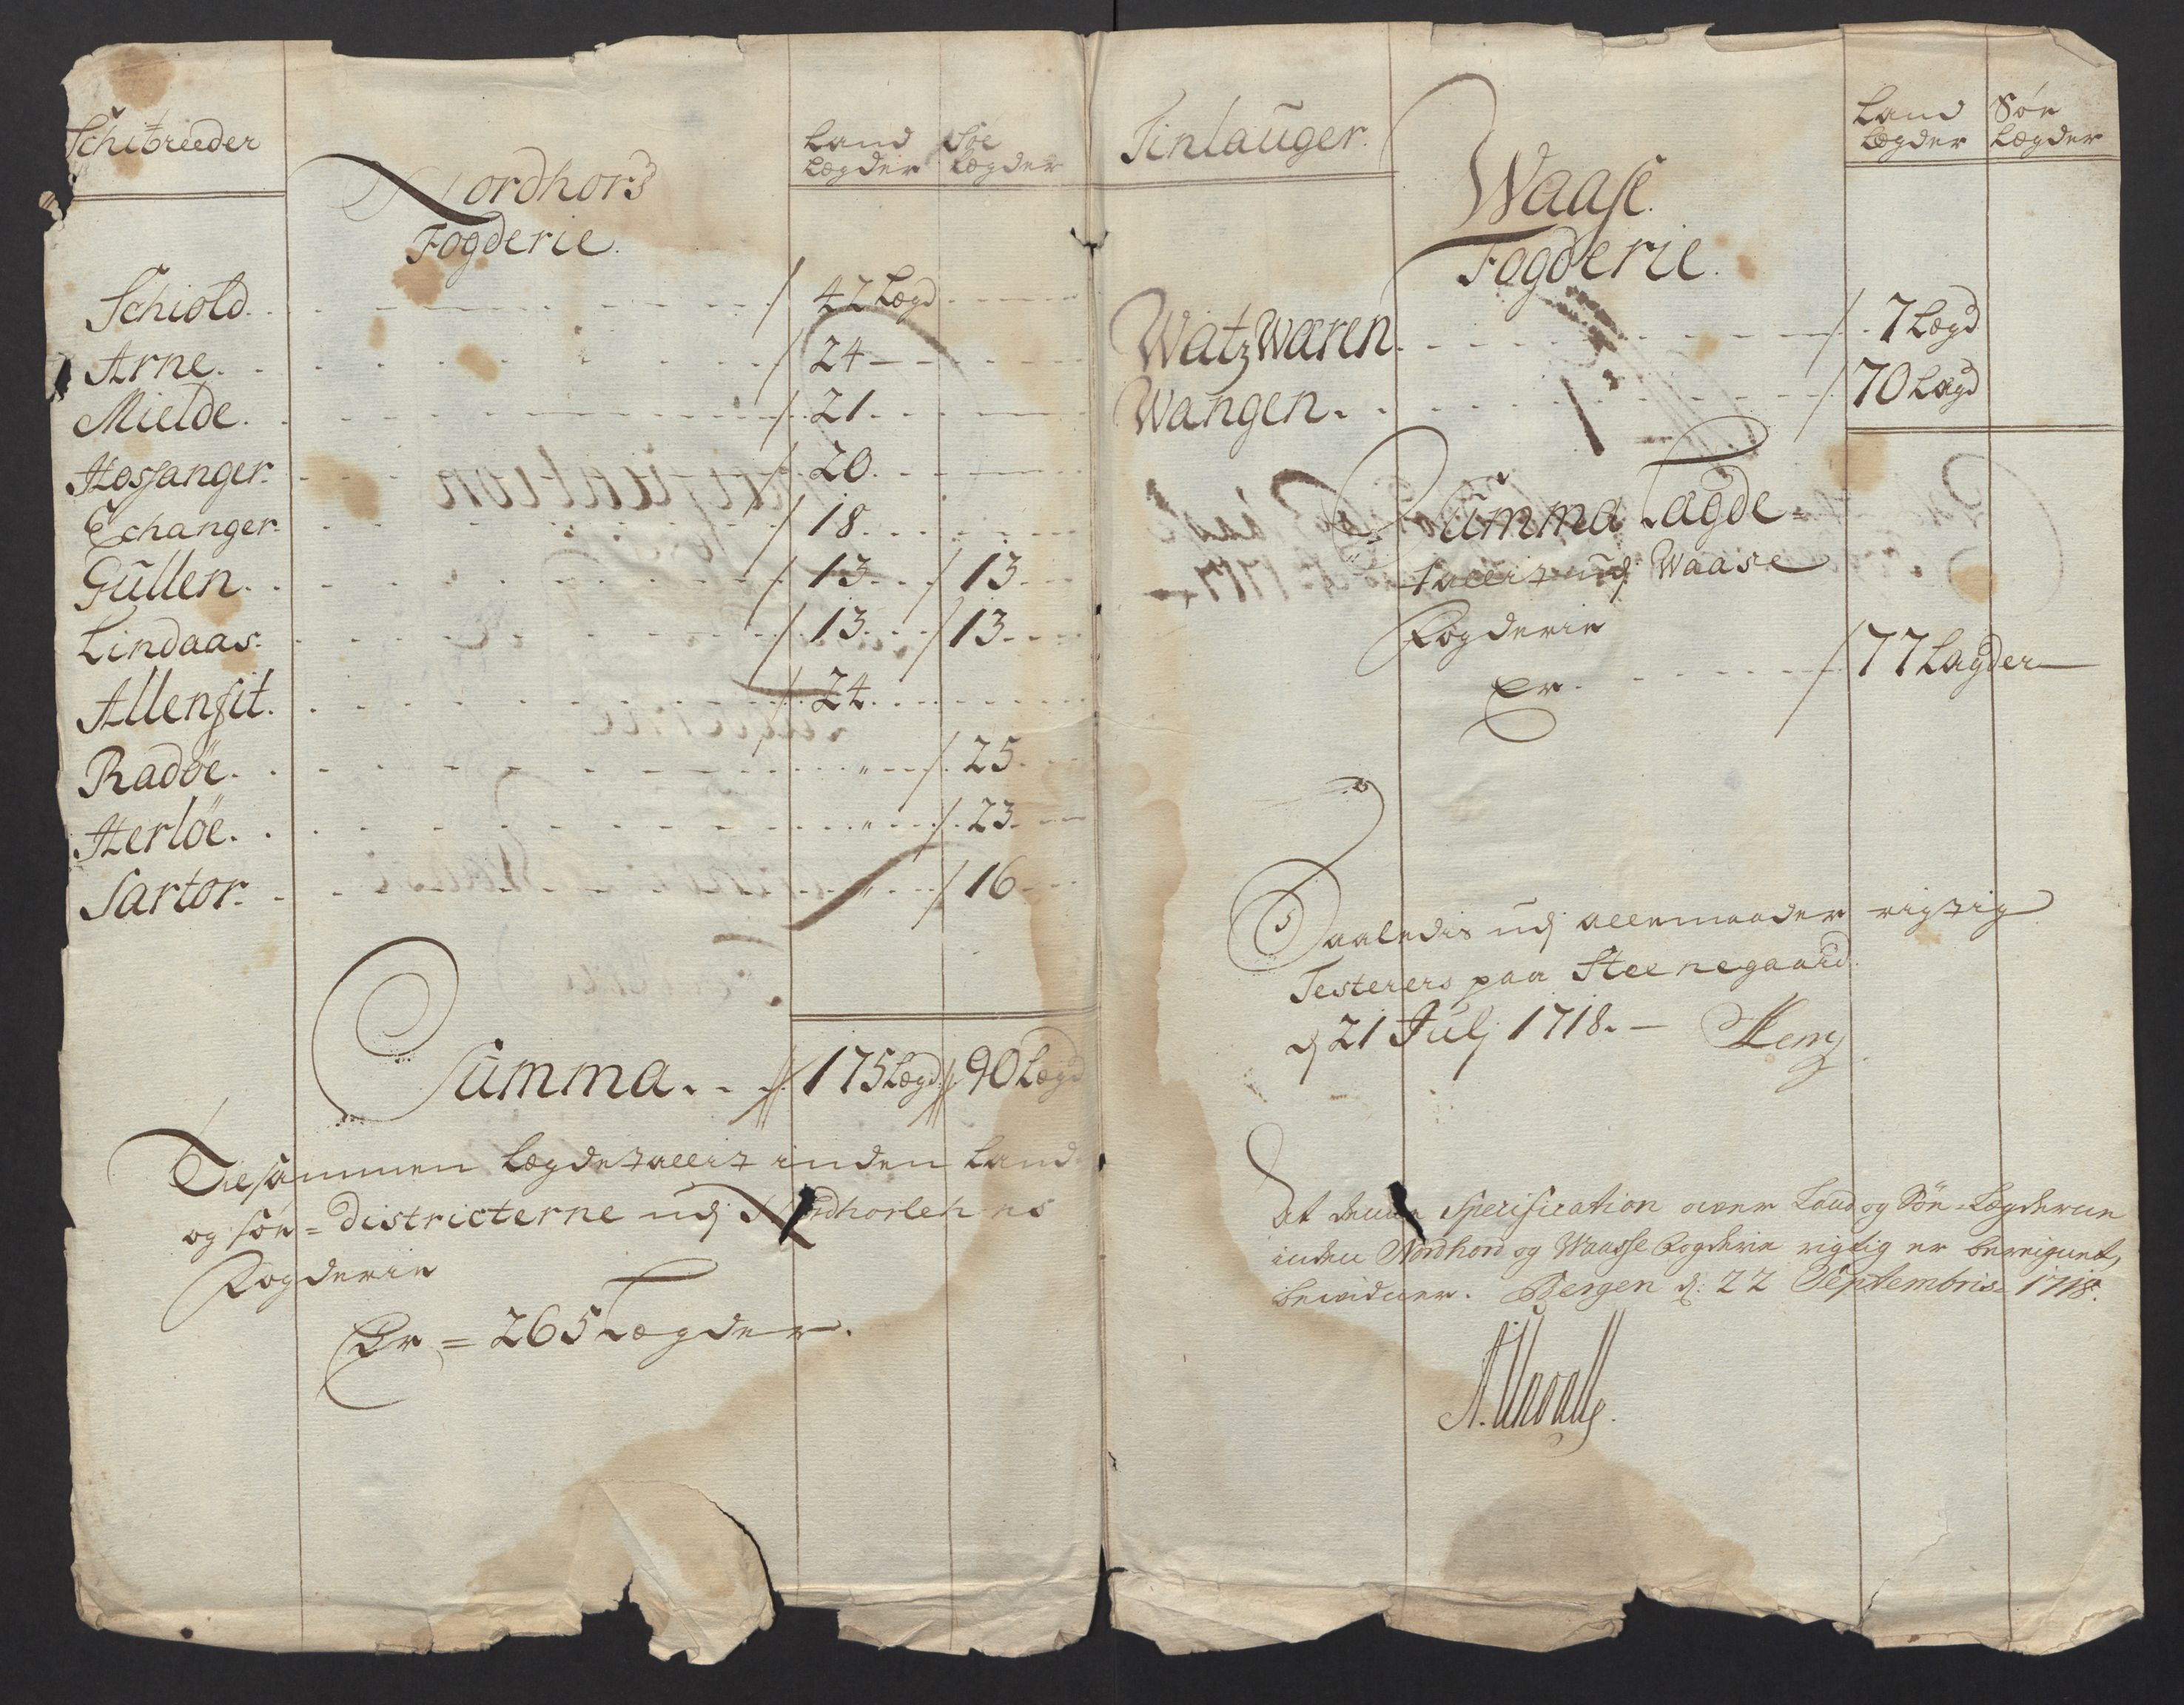 Schibreeder
Nordhors
Fogderie.
Land Lægder
Söe Lægder
Schiold. / 42 Lægd
Arne. / 24
Mielde. / 21.
Hossanger. / 20.
Echanger. / 18.
Güllen. / 13. / 13.
Lindaas. / 13. / 13.
Allensit. / 24.
Radöe. " / 25.
Herlöe. " / 23.
Sartor. " / 16
Summa. 175 Lægd. 90 Lægd
Tilsammen Lægdetallit inden Land
og Söe=Districterne udj Nordhorlehns
Fogderie
Er = 265 Lægder.
Tinlauger.
Waase.
Fogderie.
Land Lægder
Söe Lægder
WatzWaren / 7 Lægd
Wangen. / 70 Lægd
Summa Lægde=
tallit udj Waase
Fogderie
Er. / 77 Lægder
Saaledis udj allemaader rigtig
Testerers paa Steenegaard.
d 21 Julj 1718.
At denne Specification over Land og Söe=Lægderne
inden Nordhord og Waasse Fogderie rigtig er beregnet,
bevidner. Bergen d: 22 Septembris 1718.